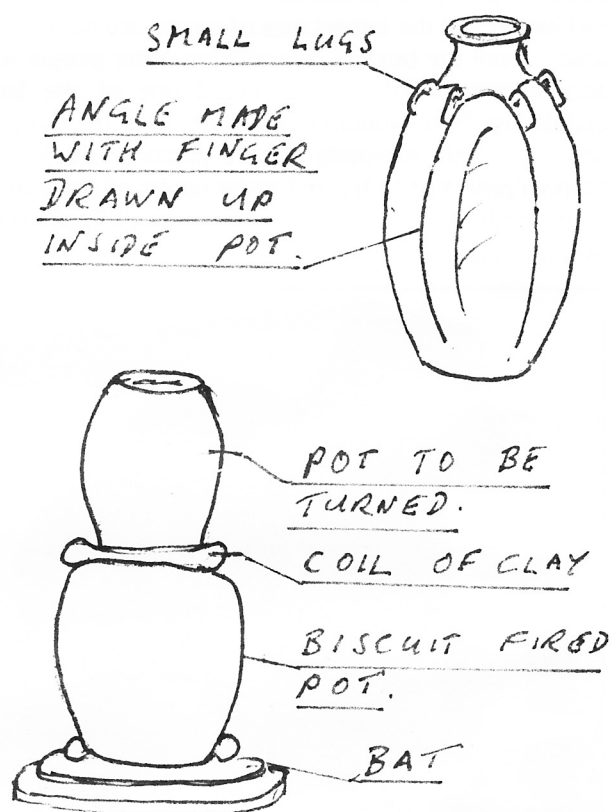 SMALL LUGS
ANGLE MADE
WITH FINGER
DRAWN UP
INSIDE POT.
POT TO BE
TURNED.
COIL OF CLAY
BISCUIT FIRED
POT.
BAT